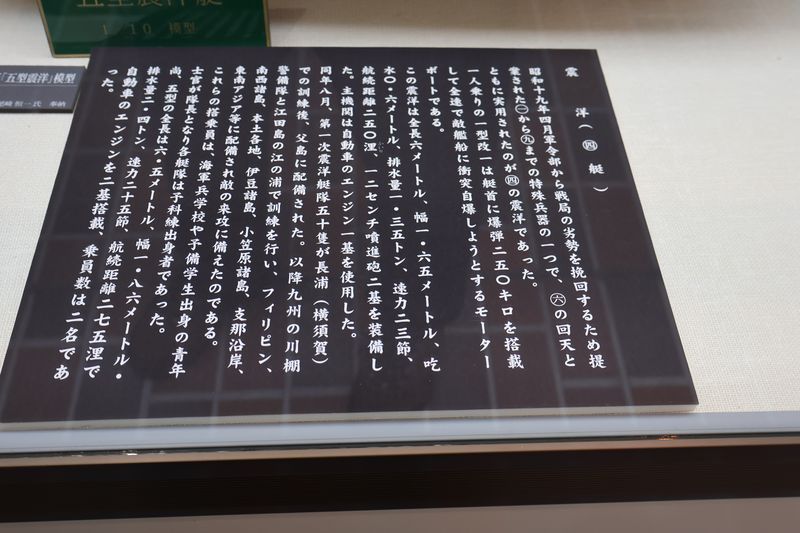 五型震洋艇
1/10 模型
「五型震洋」模型
恒一氏 奉納
震洋（㊃艇）
昭和十九年四月軍令部から戦局の劣勢を挽回するため提
案された㊀から㊈までの特殊兵器の一つで、㊅の回天と
ともに実用されたのが㊃の震洋であった。
一人乗りの一型改一は艇首に爆弾二五〇キロを搭載
して全速で敵艦船に衝突自爆しようとするモーター
ボートである。
この震洋は全長六メートル、幅一・六五メートル、吃
水〇・六メートル、排水量一・三五トン、速力二三節、
航続距離二五〇浬、一二センチ噴進砲二基を装備し
た。主機関は自動車のエンジン一基を使用した。
同年八月、第一次震洋艇隊五十隻が長浦（横須賀）
での訓練後、父島に配備された。以降九州の川棚
警備隊と江田島の江の浦で訓練を行い、フィリピン、
南西諸島、本土各地、伊豆諸島、小笠原諸島、支那沿岸、
東南アジア等に配備され敵の来攻に備えたのである。
これらの搭乗員は、海軍兵学校や予備学生出身の青年
士官が隊長となり各艇隊は予科練出身者であった。
尚、五型の全長は六・五メートル、幅一・八六メートル・
排水量二・四トン、速力二十五節、航続距離二七五浬で
自動車のエンジンを二基搭載、乗員数は二名であ
った。